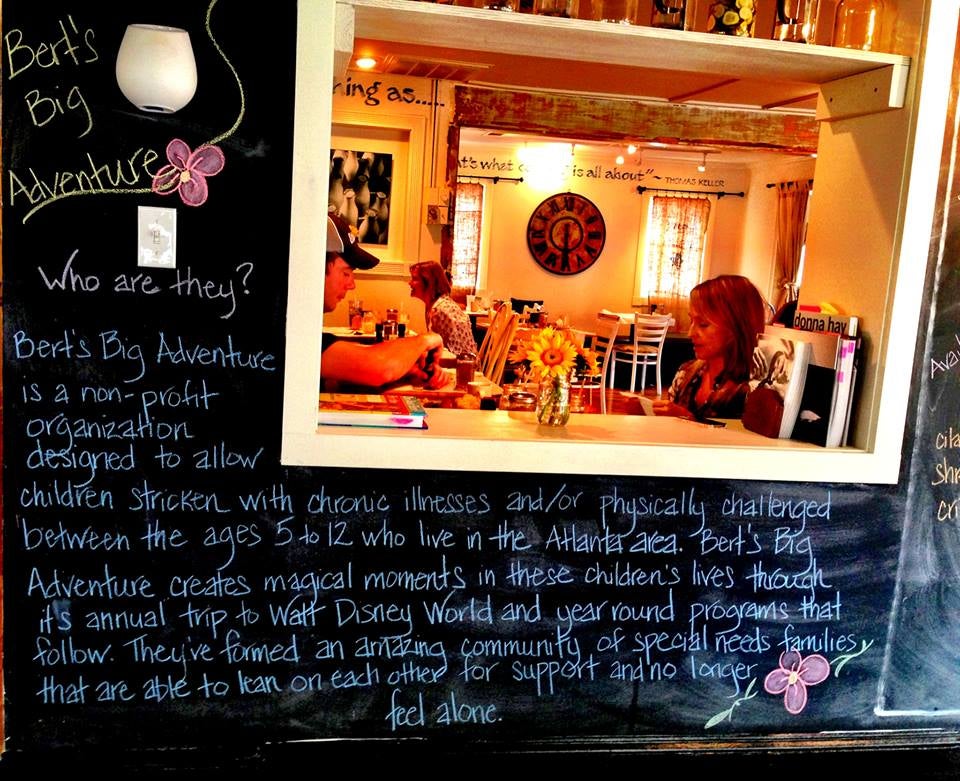 Bert's
Big
Adventure
Who are they?
Bert's Big Adventure
is a non-profit
organization
designed to allow
children stricken with chronic illnesses and/or physically challenged
between the ages 5 to 12 who live in the Atlanta area. Bert's Big
Adventure creates magical moments in these children's lives through
it's annual trip to Walt Disney World and year round programs that
follow. They've formed an amazing community of special needs families
that are able to lean on each other for support and no longer
feel alone.
as.....
what is all about" ~ THOMAS KELLER
donna hay